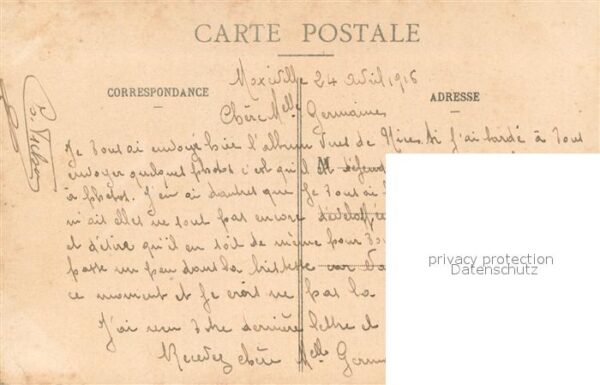 CARTE POSTALE
CORRESPONDANCE
ADRESSE
24 Avril 1916
Chère Melle Germaine
Je vous ai envoyé hier l'album vues de si j'ai tardé à vous
envoyer quelques photos c'est qu'il est
à photos. J'en ai d'autres que je vous ai
mais elles ne sont pas encore
et désire qu'il en soit de même pour
passe un peu dans la tristesse car
ce moment et je crois ne pas la
J'ai reçu votre dernière lettre
Recevez chère Melle
privacy protection
Datenschutz